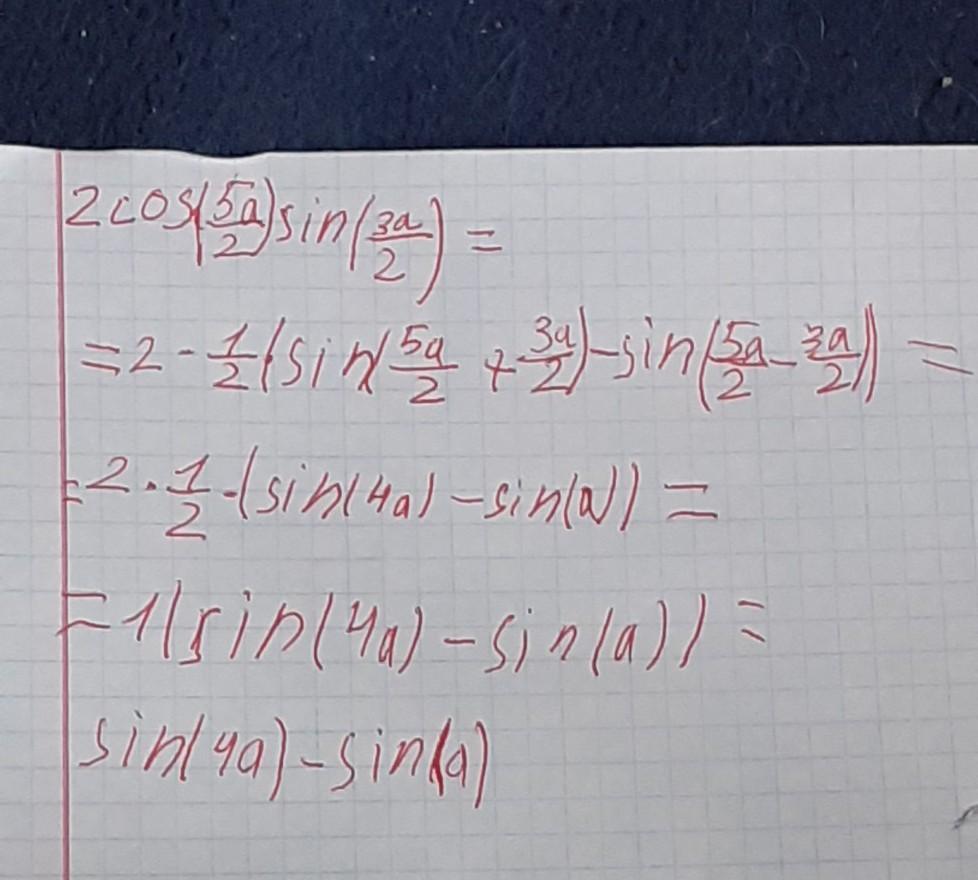 2cos(5a/2)sin(3a/2) =
= 2 · 1/2 (sin(5a/2 + 3a/2) - sin(5a/2 - 3a/2)) =
= 2 · 1/2 · (sin(4a) - sin(a)) =
= 1(sin(4a) - sin(a)) =
sin(4a) - sin(a)